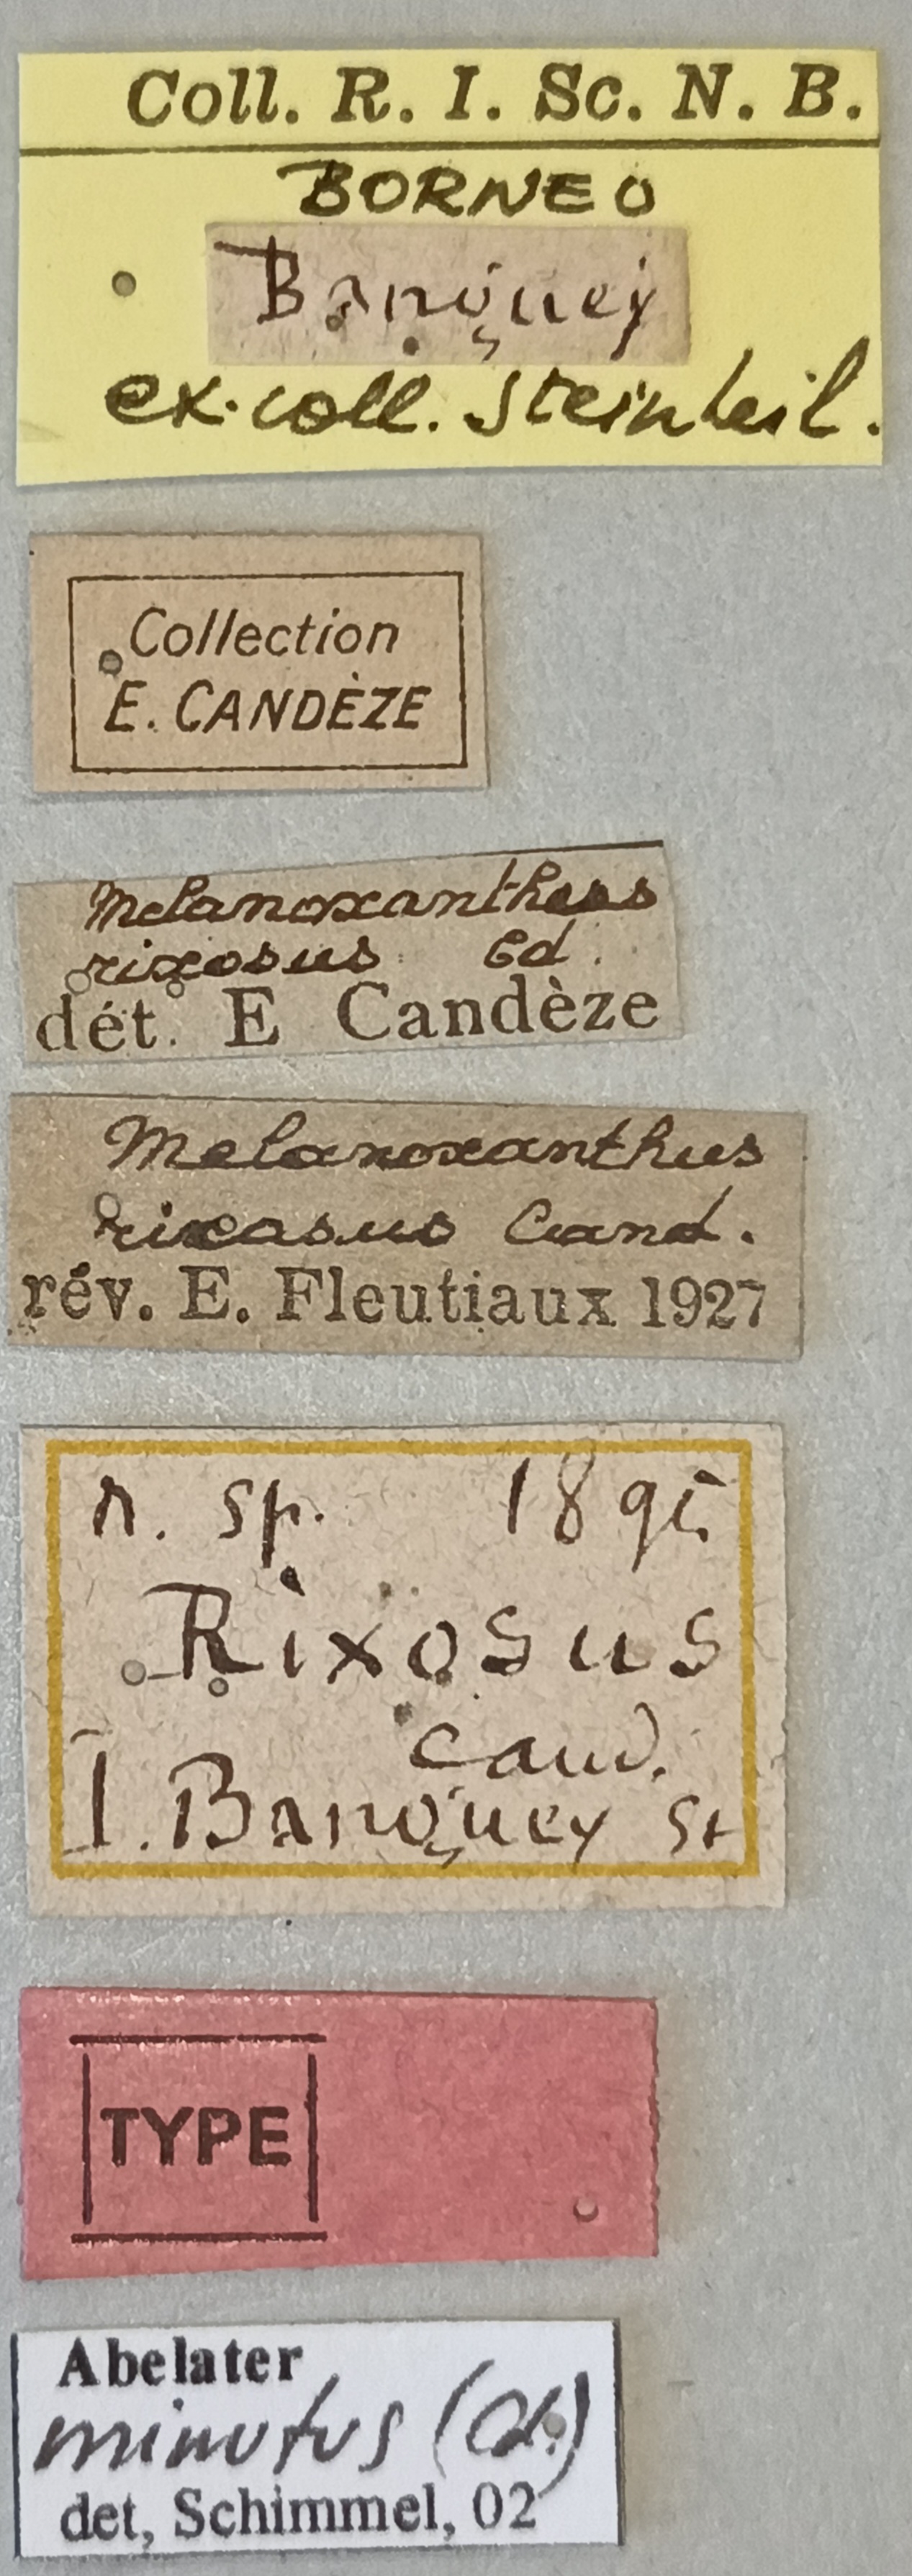 Coll. R. I. Sc. N. B.
BORNEO
Banguey
ex. coll. Steinheil.
Collection
E. CANDÈZE
Melanoxanthus
rixosus Cd.
dét. E Candèze
Melanoxanthus
rixosus Cand.
rév. E. Fleutiaux 1927
n. sp.
Rixosus
Cand.
I. Banguey St
TYPE
Abelater
minutus (Cd.)
det, Schimmel, 02